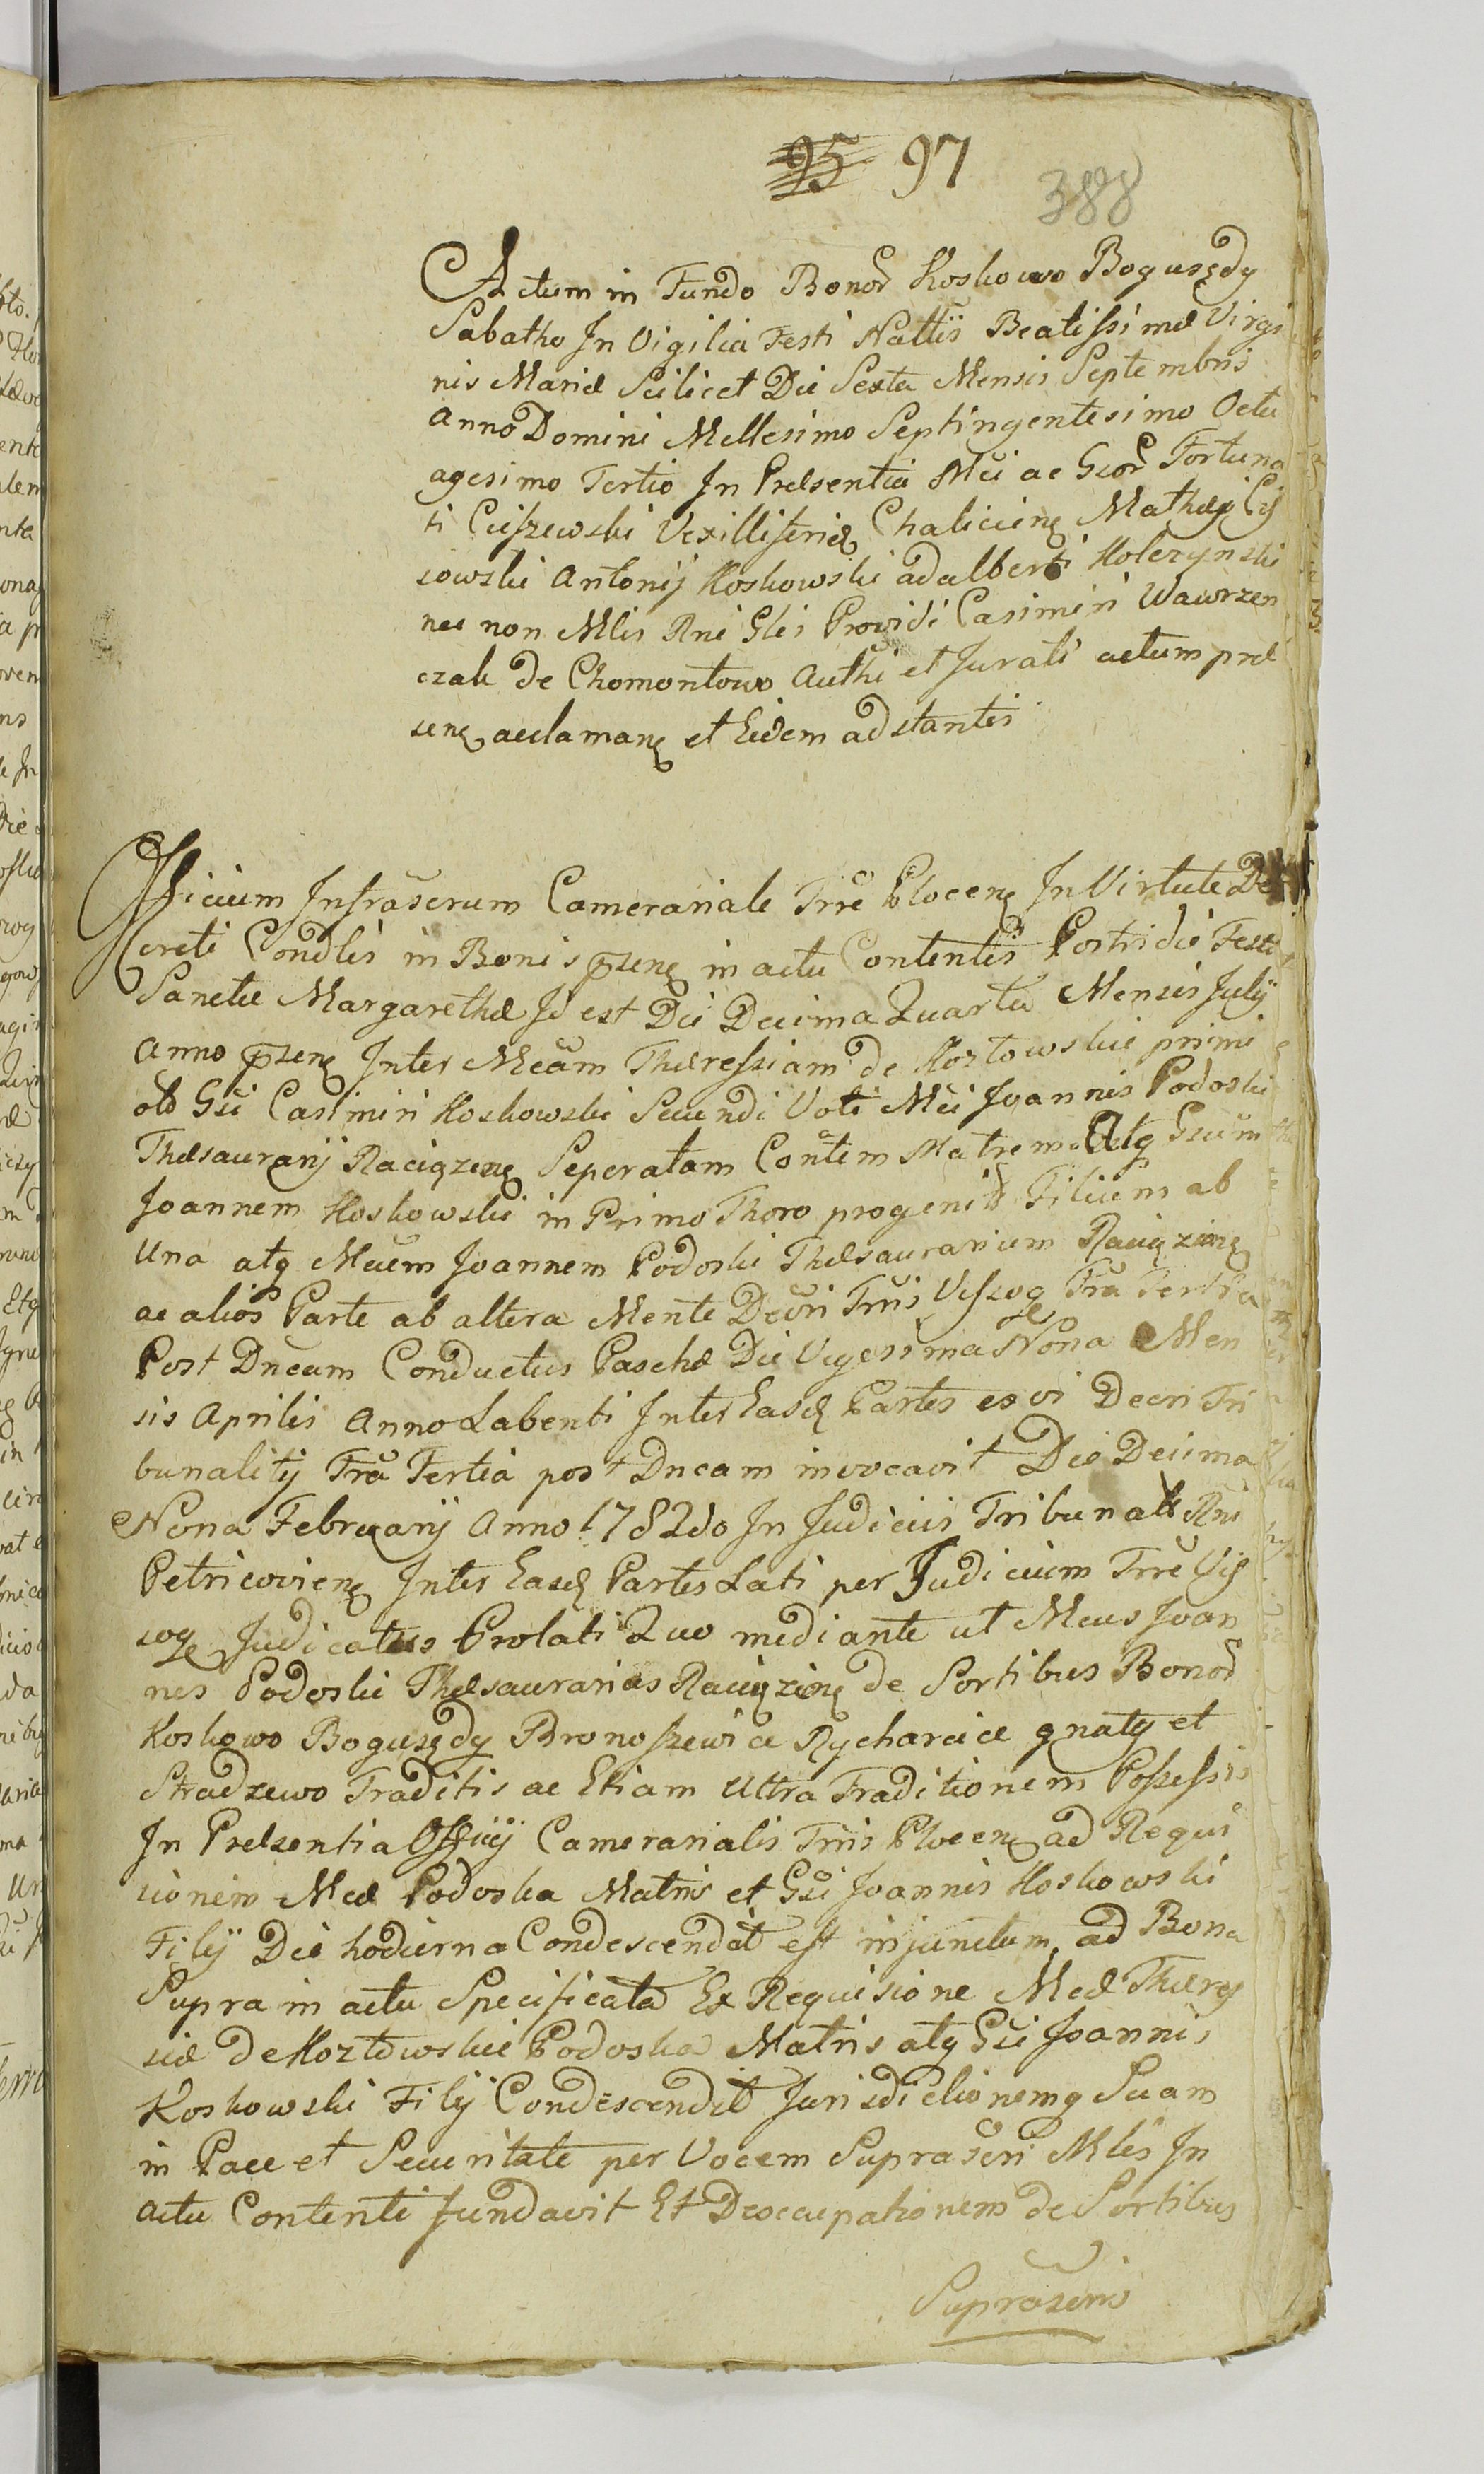 95 97
388
Actum in Fundo Bonor Koskowo Bogusędy
Sabatho In Vigilia Festi Nattis Beatissimæ Virgi
nis Mariæ Scilicet Die Sexta Mensis Septembris
Anno Domini Millesimo Septingentesimo Octu
agesimo Tertio In Præsentia Mci ac Gsor Fortuna
ti Ciszewski Vexilliferidę Chalicienę Mathęi Cis
sowski Antonij Koskowski Adalberti Kolczynski
nec non Mlis Rni Glis Providi Casimiri Wawrzen
czak De Chomontowo Authi et Jurati actum præ
senę acclamanę et Eidem adstantis
Officium Infrascrum Camerariale Trre Plocenę In Virtute De
creti Condlis in Bonis pzenę in actu Contentis Postridie Festi
Sanctæ Margarethæ Id est Die Decima Quarta Mensis Julij
Anno pzenę Inter Mcam Theressiam de Kozłowskie primi
olo Gsi Casimiri Koskowski Secundi Voti Mci Joannis Podoski
Thesaurarij Raciązenę Seperatam Contem Matrem Atq Gsum
Joannem Koskowski in Primo Thoro progenit Filium ab
Una atq Mcum Joannem Podoski Thesaurarium Raciązinę
ac alios Parte ab altera Mente Decri Trris Vissogę Fra Tertia
Post Dncam Conductus Paschæ Die Vigesima Nona Men
sis Aprilis Anno Labenti Inter Easd Partes ex vi Decri Tri
bunalitij Fra Tertia post Dncam invocavit Die Decima
Nona Februarij Anno 1782do In Judiciis Tribunalis Rni
Petricovienę Inter Easd Partes Lati per Judicium Trre Vis
sogę Judicatus Prolati Quo mediante ut Mcus Joan
nes Podoski Thesaurarius Raciązinę de Sortibus Bonor
Koskowo Bogusędy Bronoszewice Rycharcice gnaty et
Stradzewo Traditis ac Etiam Ultra Traditionem Possessis
In Præsentia Officij Camerarialis Trris Plocenę ad Requi
sionem Mcæ Podoska Matris et Gsi Joannis Koskowski
Filij Die hodierna Condescendat est injunctum ad Bona
Supra in actu Specificata Ex Requisione Mcæ Theres
siæ De Kozłowskie Podoska Matris atq Gsi Joannis
Koskowski Filij Condescendit Jurisdictionemq Suam
in Pace et Securitate per Vocem Suprascri Mlis In
actu Contenti fundavit Et Deoccupationem de Sortibus
Suprascris